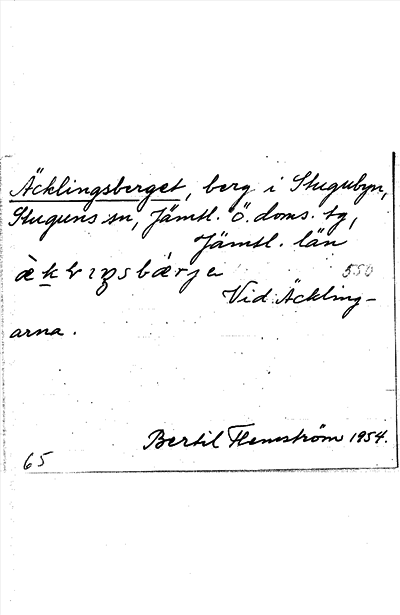 Äcklingsberget, berg i Stugubyn,
Stuguns sn, Jämtl. Ö. doms. tg,
Jämtl. län
550
Vid Äckling-
arna.
Bertil Flemström 1954.
65